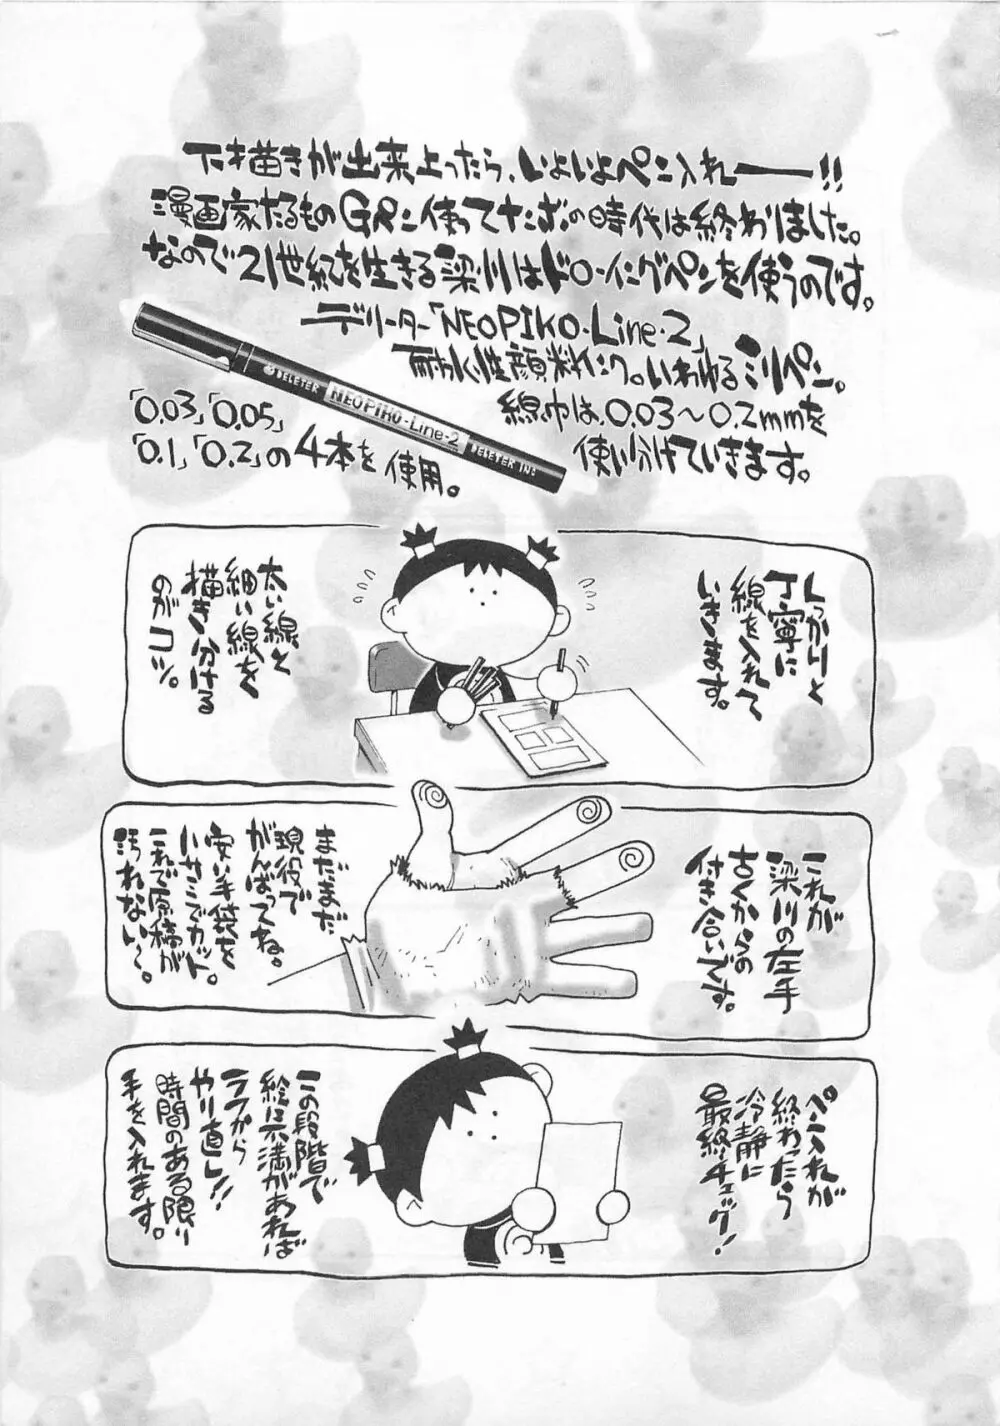 下描きが出来上ったら、いよいよペン入れ――!!
漫画家たるものGペン使ってなんぼの時代は終わりました。
なので21世紀を生きる梁川はドローイングペンを使うのです。
デリーター「NEOPIKO・Line・2」
耐水性顔料インク。いわゆるミリペン。
線巾は、0.03〜0.2mmを
使い分けていきます。
DELETER NEOPIKO-Line-2 DELETER INC.
「0.03」「0.05」
「0.1」「0.2」の4本を使用。
しっかりと
丁寧に
線を入れて
いきます。
太い線と
細い線を
描き分ける
のがコツ。
これが
梁川の左手
古くからの
付き合いです。
まだまだ
現役で
がんばってね。
安い手袋を
ハサミでカット。
これで原稿が
汚れない〜。
ペン入れが
終わったら
冷静に
最終チェック!
この段階で
絵に不満があれば
ラフから
やり直し!!
時間のある限り
手を入れます。